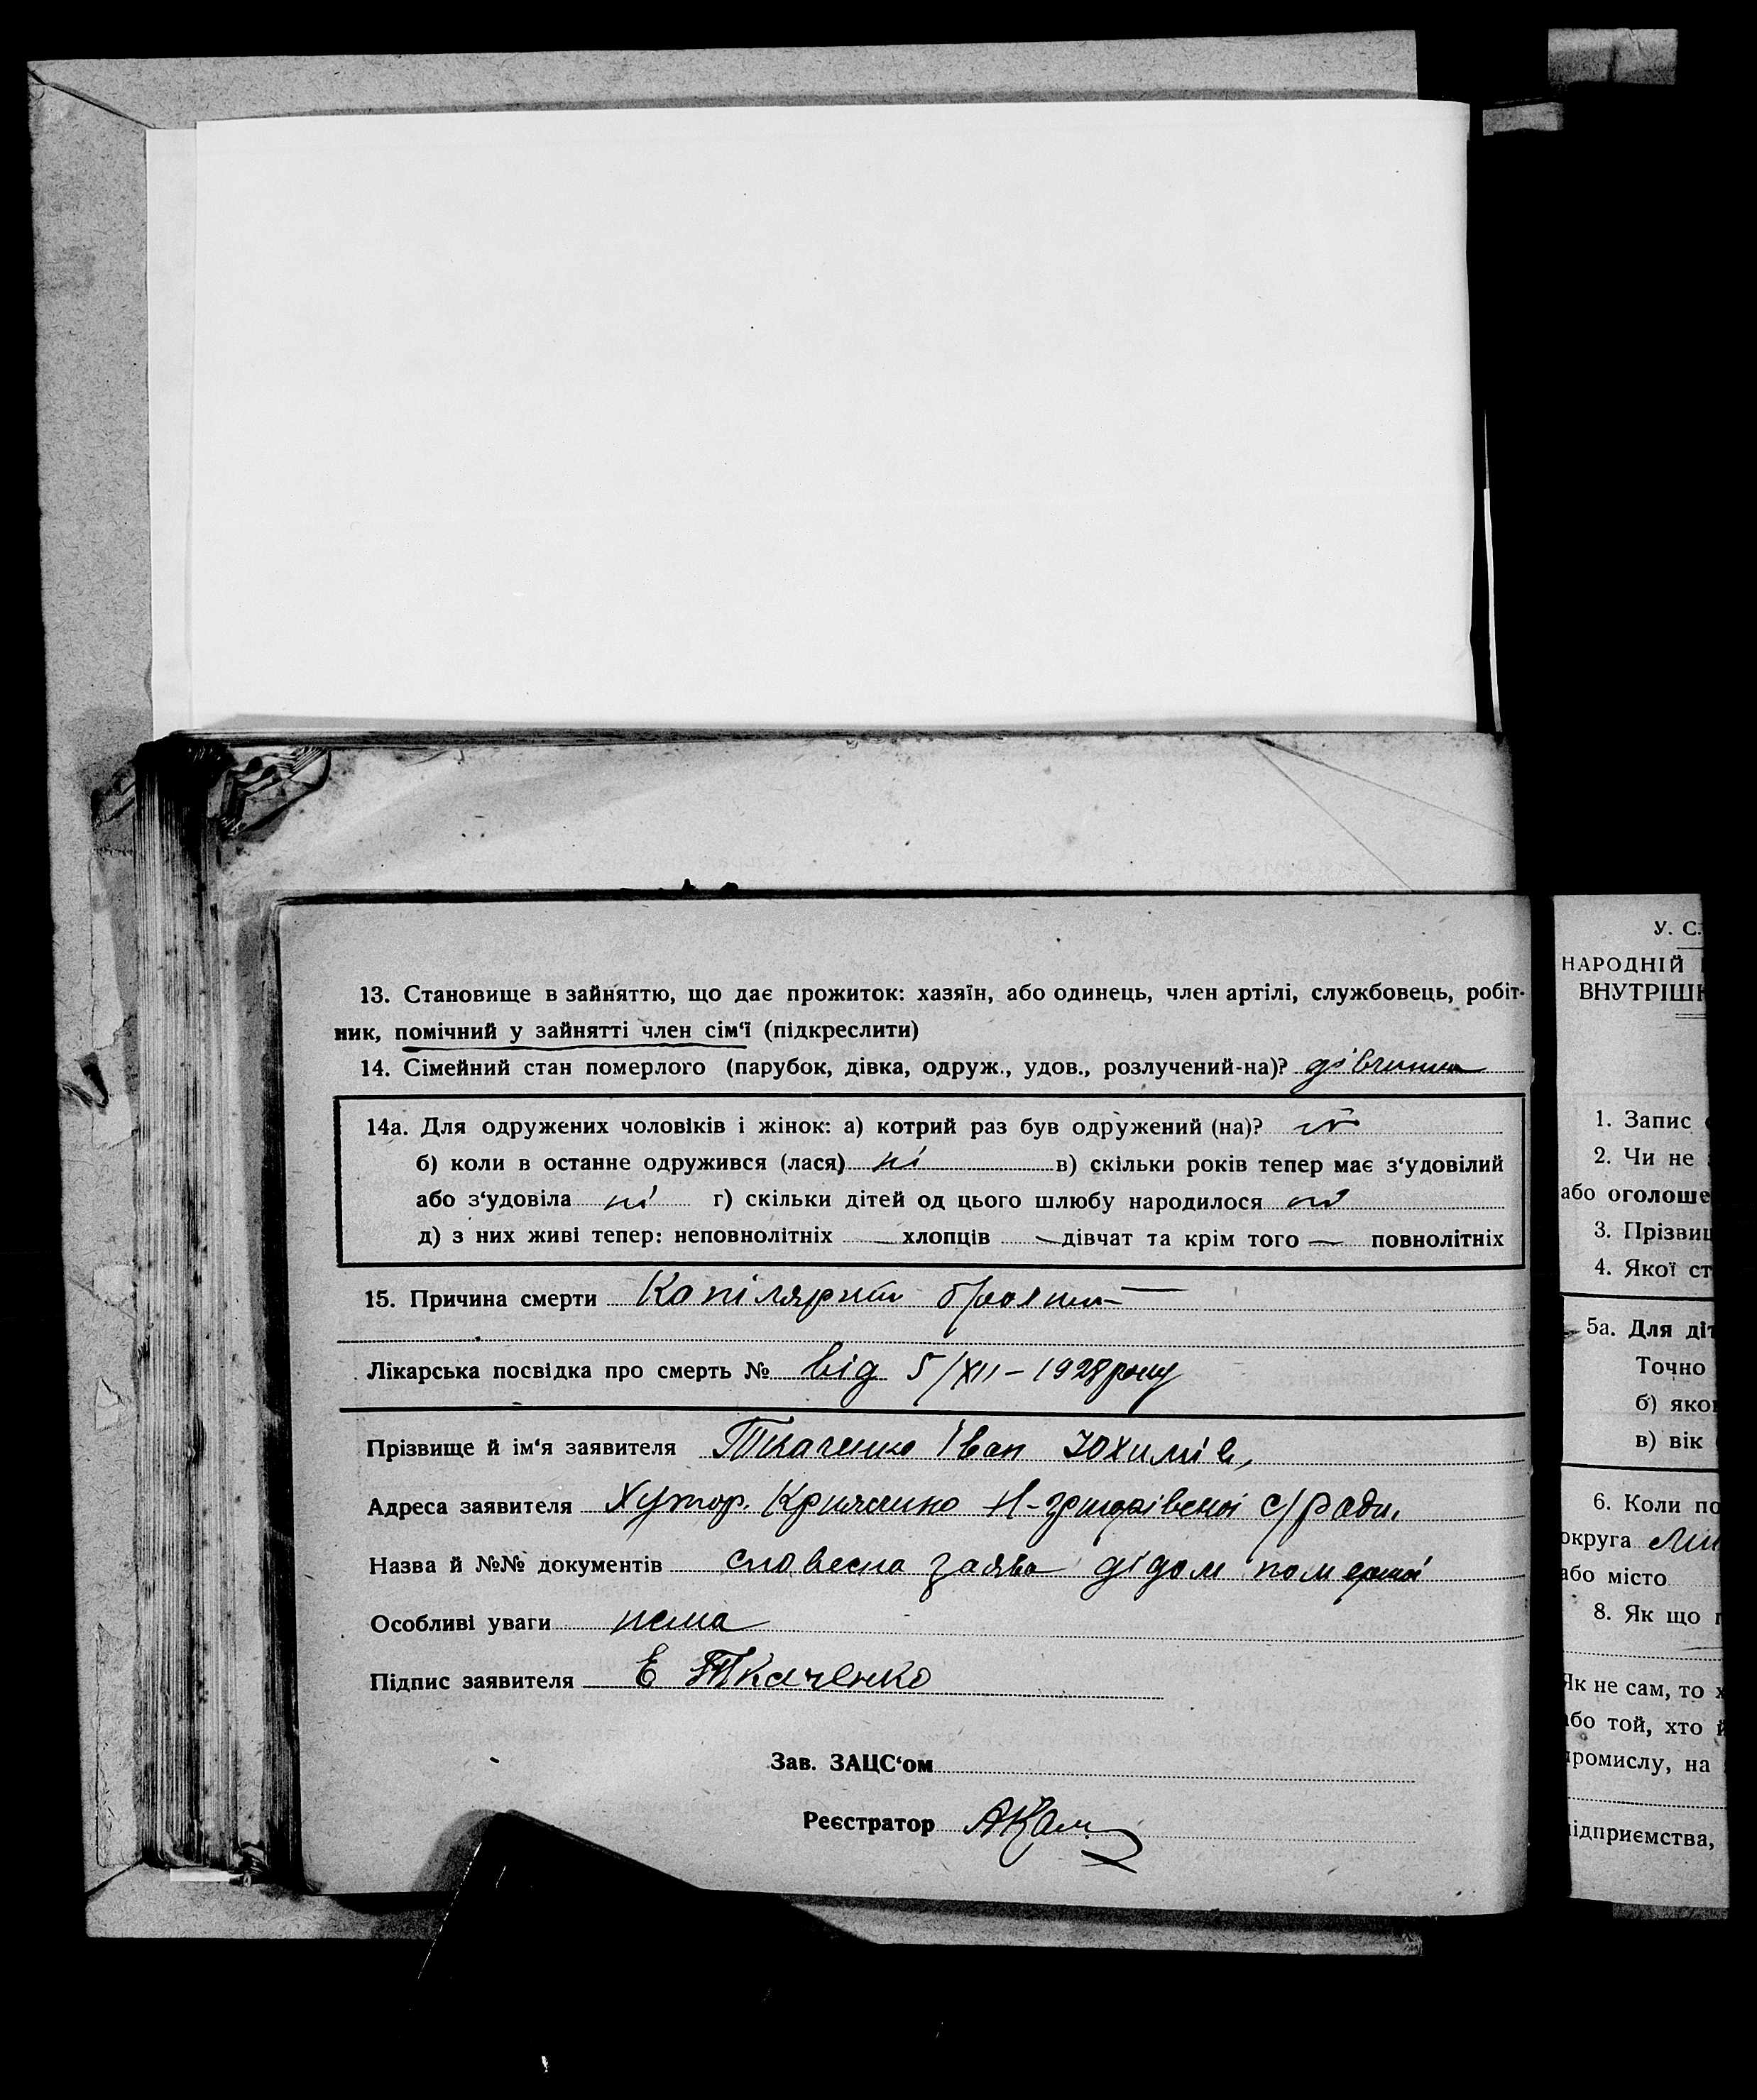 13. Становище в зайняттю, що дає прожиток: хазяїн, або одинець, член артілі, службовець, робіт-
ник, помічний у зайнятті член сім'ї (підкреслити)
14. Сімейний стан померлого (парубок, дівка, одруж., удов., розлучений-на)? дівчина
14а. Для одружених чоловіків і жінок: а) котрий раз був одружений (на)? ні
б) коли в останне одружився (лася) ні в) скільки років тепер має з'удовілий
або з'удовіла ні г) скільки дітей од цього шлюбу народилося ні
д) з них живі тепер: неповнолітніх — хлопців — дівчат та крім того — повнолітніх
15. Причина смерти Капілярний бронхит
Лікарська посвідка про смерть № від 5/XII-1928 року
Прізвище й ім'я заявителя Ткаченко Іван Юхимів,
Адреса заявителя Хутор. с/ради.
Назва й №№ документів словесна заява дідом помершої
Особливі уваги нема
Підпис заявителя Е Ткаченко
Зав. ЗАЦС'ом
Реєстратор
У. С.
НАРОДНІЙ
ВНУТРІШ
1. Запис
2. Чи не
або оголоше
3. Прізвищ
4. Якої ст
5а. Для діт
Точно
б) яко
в) вік
6. Коли по
округа
або місто
8. Як що
Як не сам, то х
або той, хто й
промислу, на
підприємства,